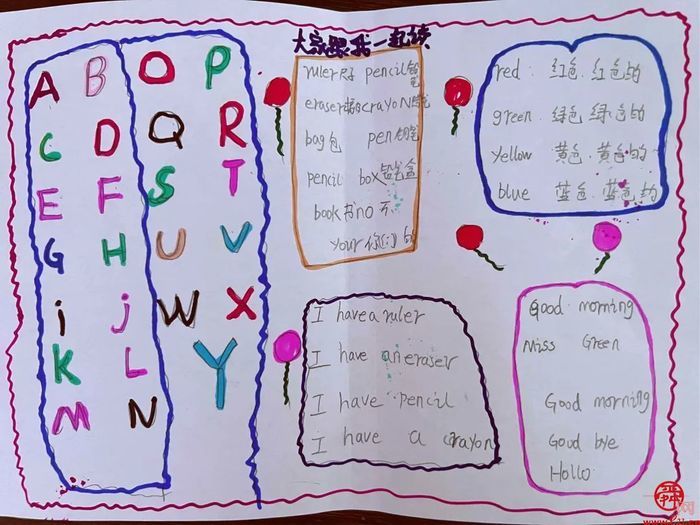 大家跟我一起读
A B O P
C D Q R
E F S T
G H U V
i j W X
K L Y
M N
ruler尺 pencil铅笔
eraser crayon
bag包 pen钢笔
pencil box铅笔盒
book书 no 不
your 你(们)的
red 红色 红色的
green 绿色 绿色的
yellow 黄色 黄色的
blue 蓝色 蓝色的
I have a ruler
I have an eraser
I have pencil
I have a crayon
Good morning
Miss Green
Good morning
Good bye
Hollo